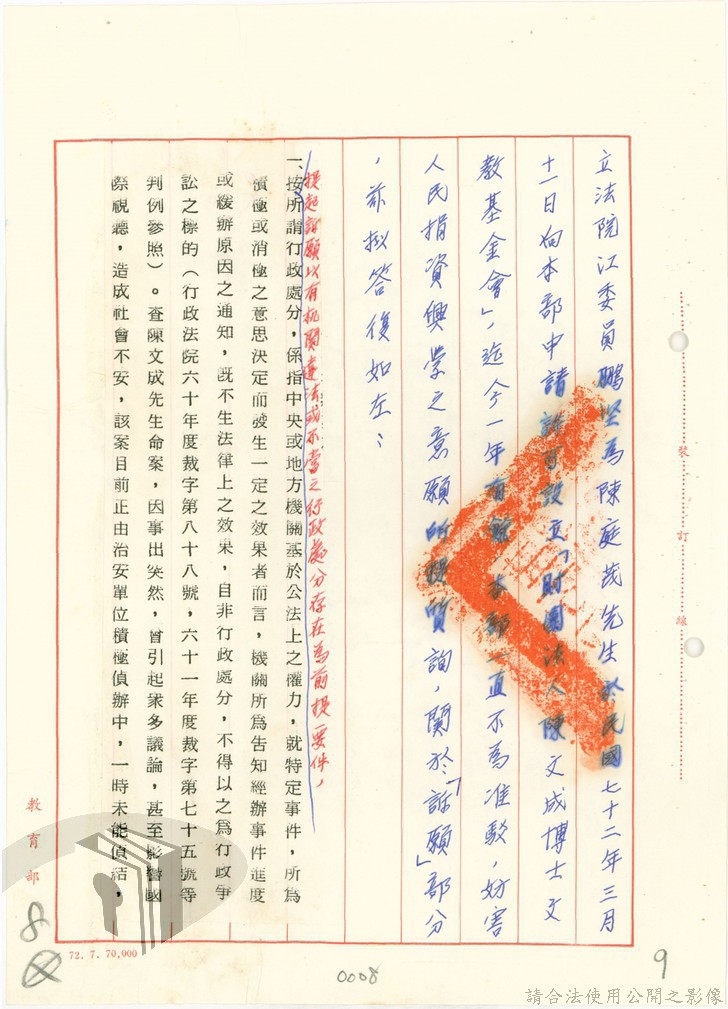 立法院江委員鵬堅為陳庭茂先生於民國七十二年三月
十一日向本部申請許可設立「財團法人陳文成博士文
教基金會」，迄今一年有餘，本部一直不為准駁，妨害
人民捐資興學之意願所提質詢，關於「訴願」部分
，茲擬答復如左：
提起訴願以有機關違法或不當之行政處分存在為前提要件，
一、按所謂行政處分，係指中央或地方機關基於公法上之權力，就特定事件，所為
積極或消極之意思決定而發生一定之效果者而言，機關所為告知經辦事件進度
或緩辦原因之通知，既不生法律上之效果，自非行政處分，不得以之為行政爭
訟之標的（行政法院六十年度裁字第八十八號，六十一年度裁字第七十五號等
判例參照）。查陳文成先生命案，因事出突然，曾引起衆多議論，甚至影響國
際視聽，造成社會不安，該案目前正由治安單位積極偵辦中，一時未能偵結，
裝訂線
教育部
8
72. 7. 70,000
0008
9
請合法使用公開之影像